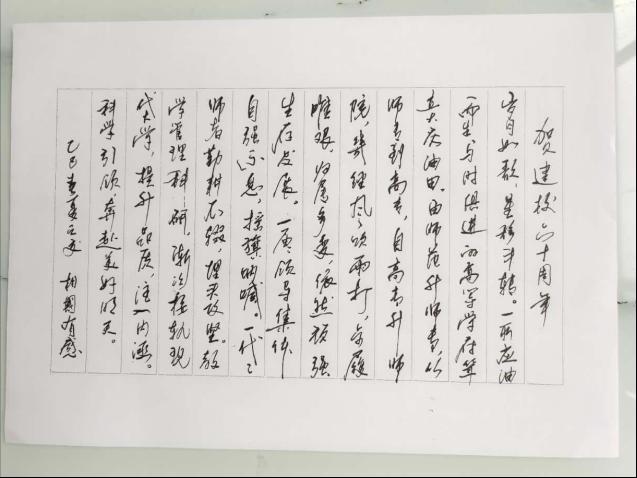 贺建校六十周年
岁月如歌，星移斗转。一所应油
而生与时俱进的高等学府举
立大庆油田。由师范升师专，从
师专到高专，自高专升师
院，几经风吹雨打，步履
维艰，归属多变，依然顽强
生存发展。一届领导集体
自强不息，摇旗呐喊。一代代
师者勤耕不辍，埋头攻坚。教
学管理科研，渐次接轨现
代大学，提升品质，注入内涵。
科学引领，奔赴美好明天。
乙巳孟夏之交 相图有感